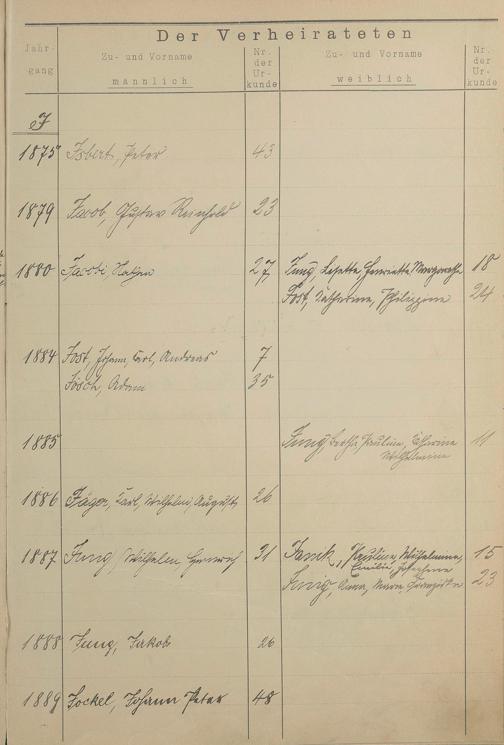 Der Verheirateten
Jahr-
gang
Zu- und Vorname
männlich
Nr.
der
Ur-
kunde
Zu- und Vorname
weiblich
Nr.
der
Ur-
kunde
J
1875 Isbert, Peter 43
1879 Jacob, Gustav Reinhold 23
1880 Jacobi, 27 Jung, Lisette Henriette Margarethe 18
Jost, Catharina, Philippine 24
1884 Jost, Johann, Carl, Andreas 7
Jösch, Adam 35
1885 Jung, Bertha, Pauline, Catharine 11
Wilhelmine
1886 Jäger, Carl, Wilhelm, August 26
1887 Jung, Wilhelm, Heinrich 21 Janck, Paulina, Wilhelmine, 15
Emilie, Josephine
Jung, Anna, Maria, Franziska 23
1888 Jung, Jakob 26
1889 Jockel, Johann Peter 48